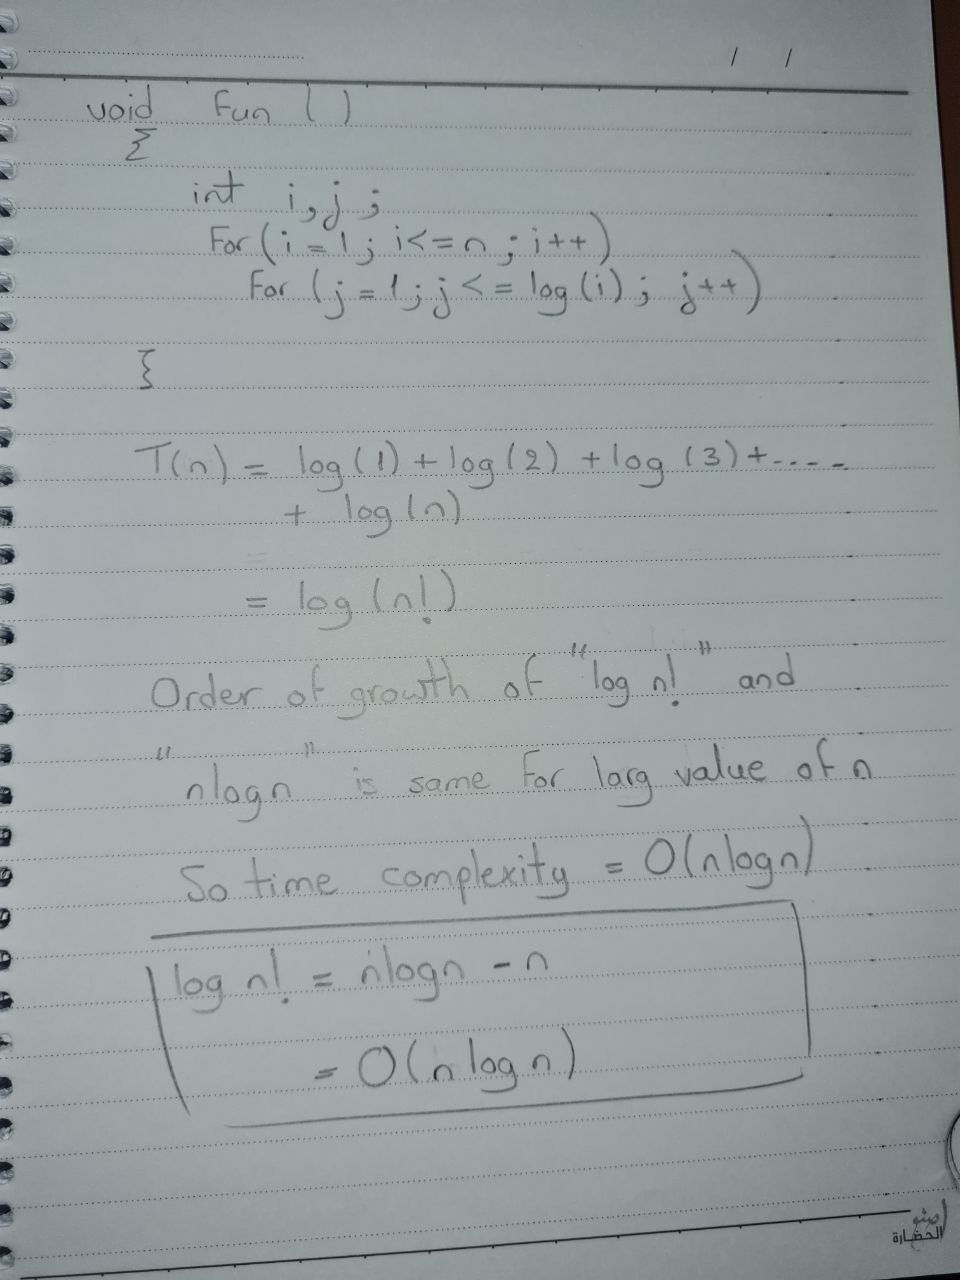 / /
void Fun ( )
{
int i,j ;
For (i = 1; i<=n ; i++)
For (j = 1; j <= log (i) ; j++)
}
T(n) = log (1) + log (2) + log (3) + ....
+ log (n)
= log (n!)
Order of growth of "log n!" and
"nlogn" is same For larg value of n
So time complexity = O(nlogn)
log n! = nlogn - n
= O(n log n)
الحضارة